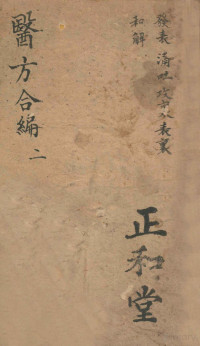 發表 涌吐 攻裏 表裏
和解
正和堂
醫方合編 二